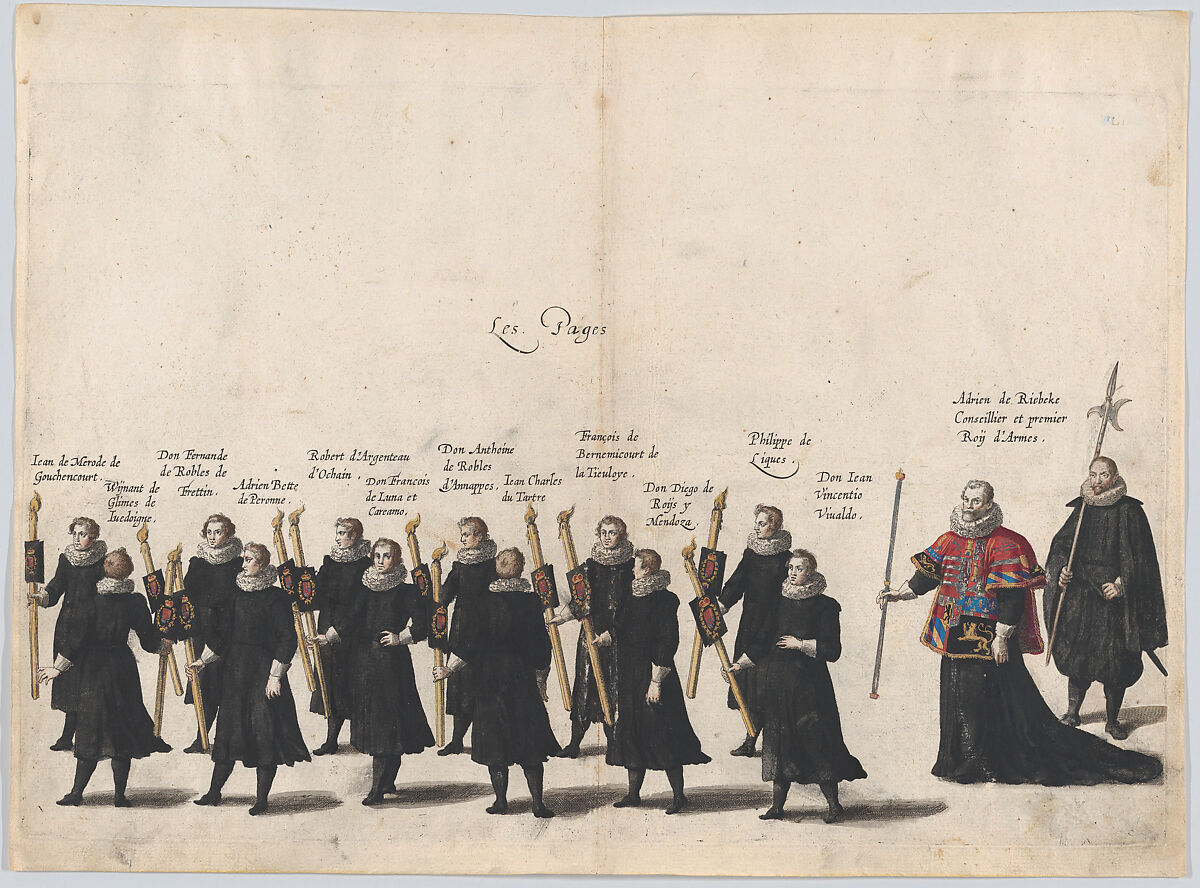 Les Pages
Iean de Merode de
Gouchencourt.
Wijnant de
Glimes de
Iuedoigne.
Don Fernande
de Robles de
Frettin.
Adrien Bette
de Peronne.
Robert d'Argenteau
d'Ochain.
Don François
de Luna et
Careamo.
Don Anthoine
de Robles
d'Annappes.
Iean Charles
du Tartre
François de
Bernemicourt de
la Tieuloye.
Don Diego de
Roijs y
Mendoza.
Philippe de
Liques.
Don Iean
Vincentio
Viualdo.
Adrien de Riebeke
Conseillier et premier
Roij d'Armes.